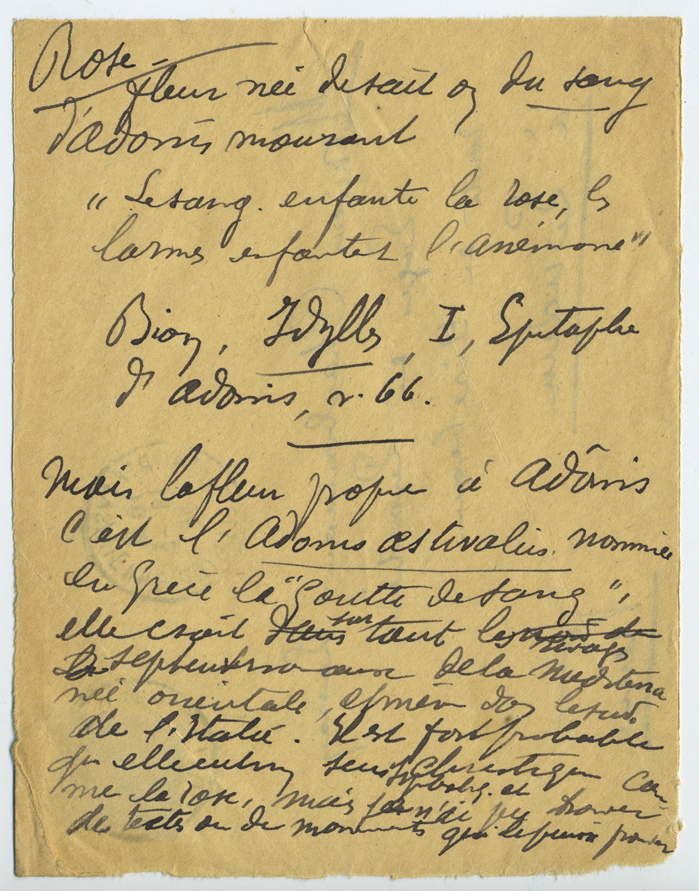 Rose –
fleur née de sait on du sang
d'adonis mourant
" Le sang enfante la rose, les
larmes enfantet l'anémone"
Bion, Idylles, I, Epitaphe
d'adonis, v. 66.
Mais la fleur propre à Adônis
c'est l'Adonis æstivalis nommée
en Grèce la "Goutte de sang",
elle croit dans sur tout les rivages
septentrionaux de la Mediterra
née orientale, et même dans le sud
de l'Italie. Il est fort probable
qu'elle eut un sens christique com
me la rose, mais je n'ai pu trouver
de textes ou de monuments qui le